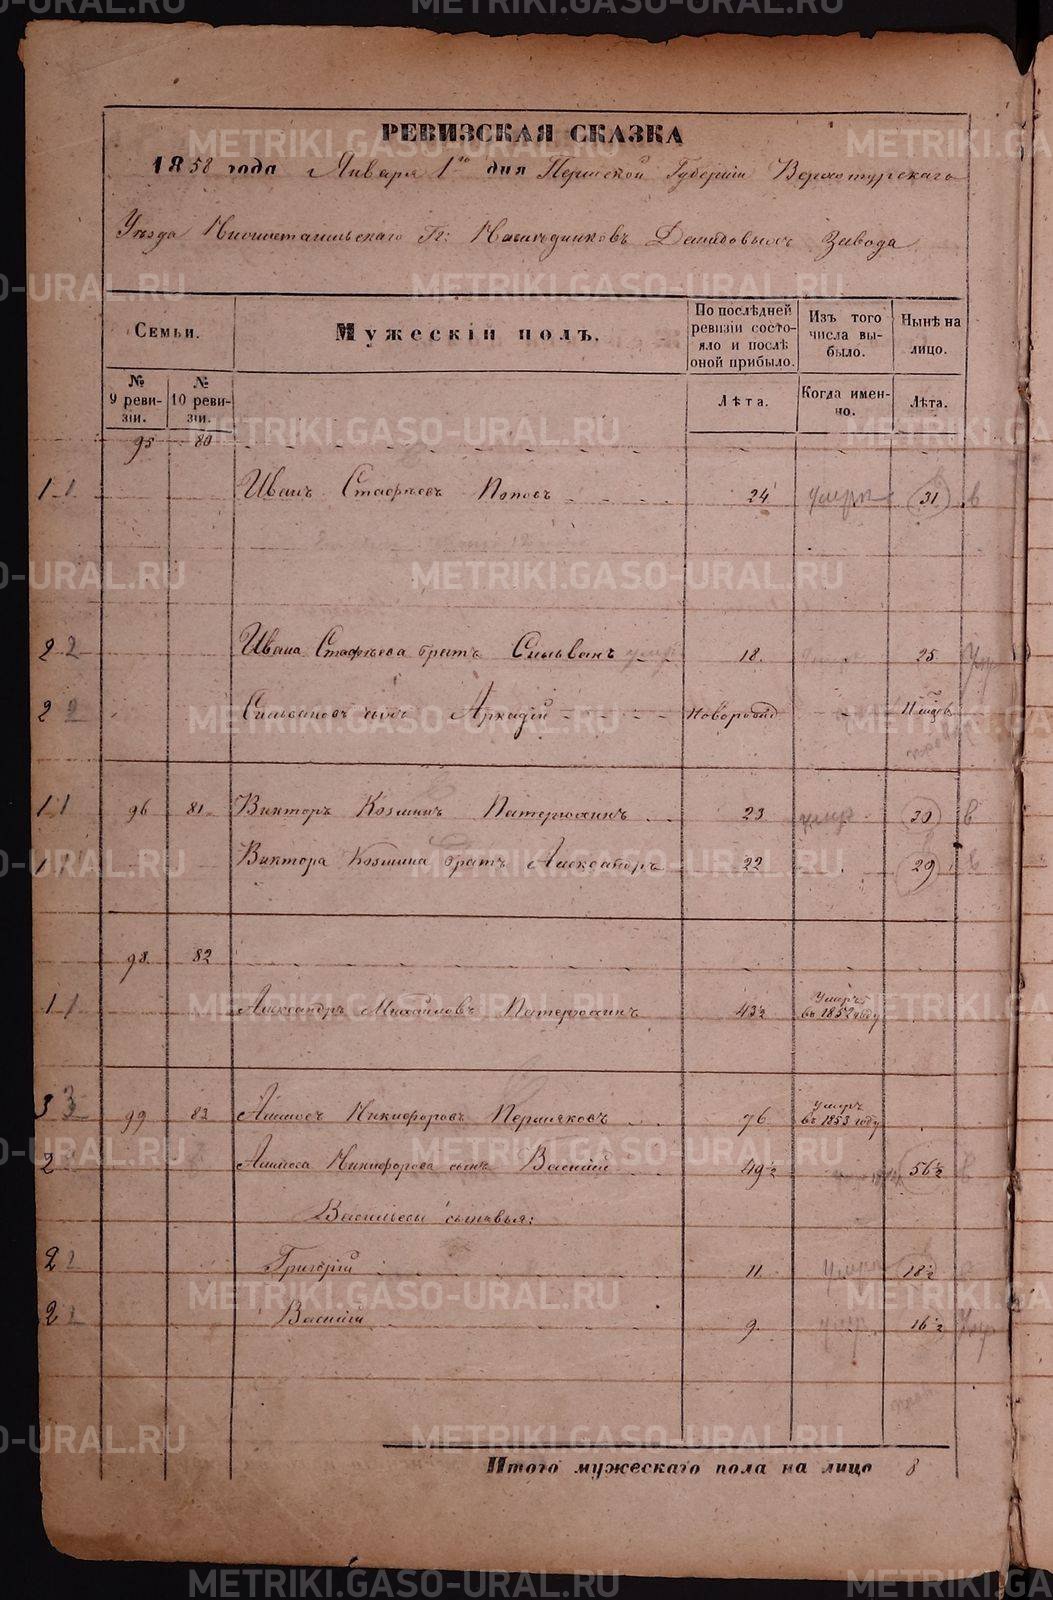 РЕВИЗСКАЯ СКАЗКА
1858 года Января 1го дня Пермской Губернiи Верхотурскаго
Уѣзда Нижнетагильскаго Гг: Наслѣдниковъ Демидовыхъ Завода
Семьи.
Мужескiй полъ.
По послѣдней ревизiи состояло и послѣ оной прибыло.
Изъ того числа выбыло.
Нынѣ на лицо.
№ 9 ревизiи.
№ 10 ревизiи.
Лѣта.
Когда именно.
Лѣта.
95 80
1 1 Иванъ Стафѣевъ Поповъ 24 умеръ 31 в
2 2 Ивана Стафѣева братъ Сильванъ умеръ 18. 25
2 2 Сильвановъ сынъ Аркадiй Новорожд 11 мцовъ
1 1 96 81 Викторъ Козминъ Патерюхинъ 23 умер 30 в
1 1 Виктора Козмина братъ Александръ 22 29 в
98. 82
1 1 Александръ Михайловъ Патерюхинъ 43½ Умеръ въ 1852 году
3 3 99 83 Аммосъ Никифоровъ Пермяковъ 76 умеръ въ 1853 году
2 Аммоса Никифорова сынъ Василiй 49½ 56½
Васильевы сыновья:
2 2 Григорiй 11 18½
2 2 Василiй 9. умер. 16½
Итого мужескаго пола на лицо 8
METRIKI.GASO-URAL.RU